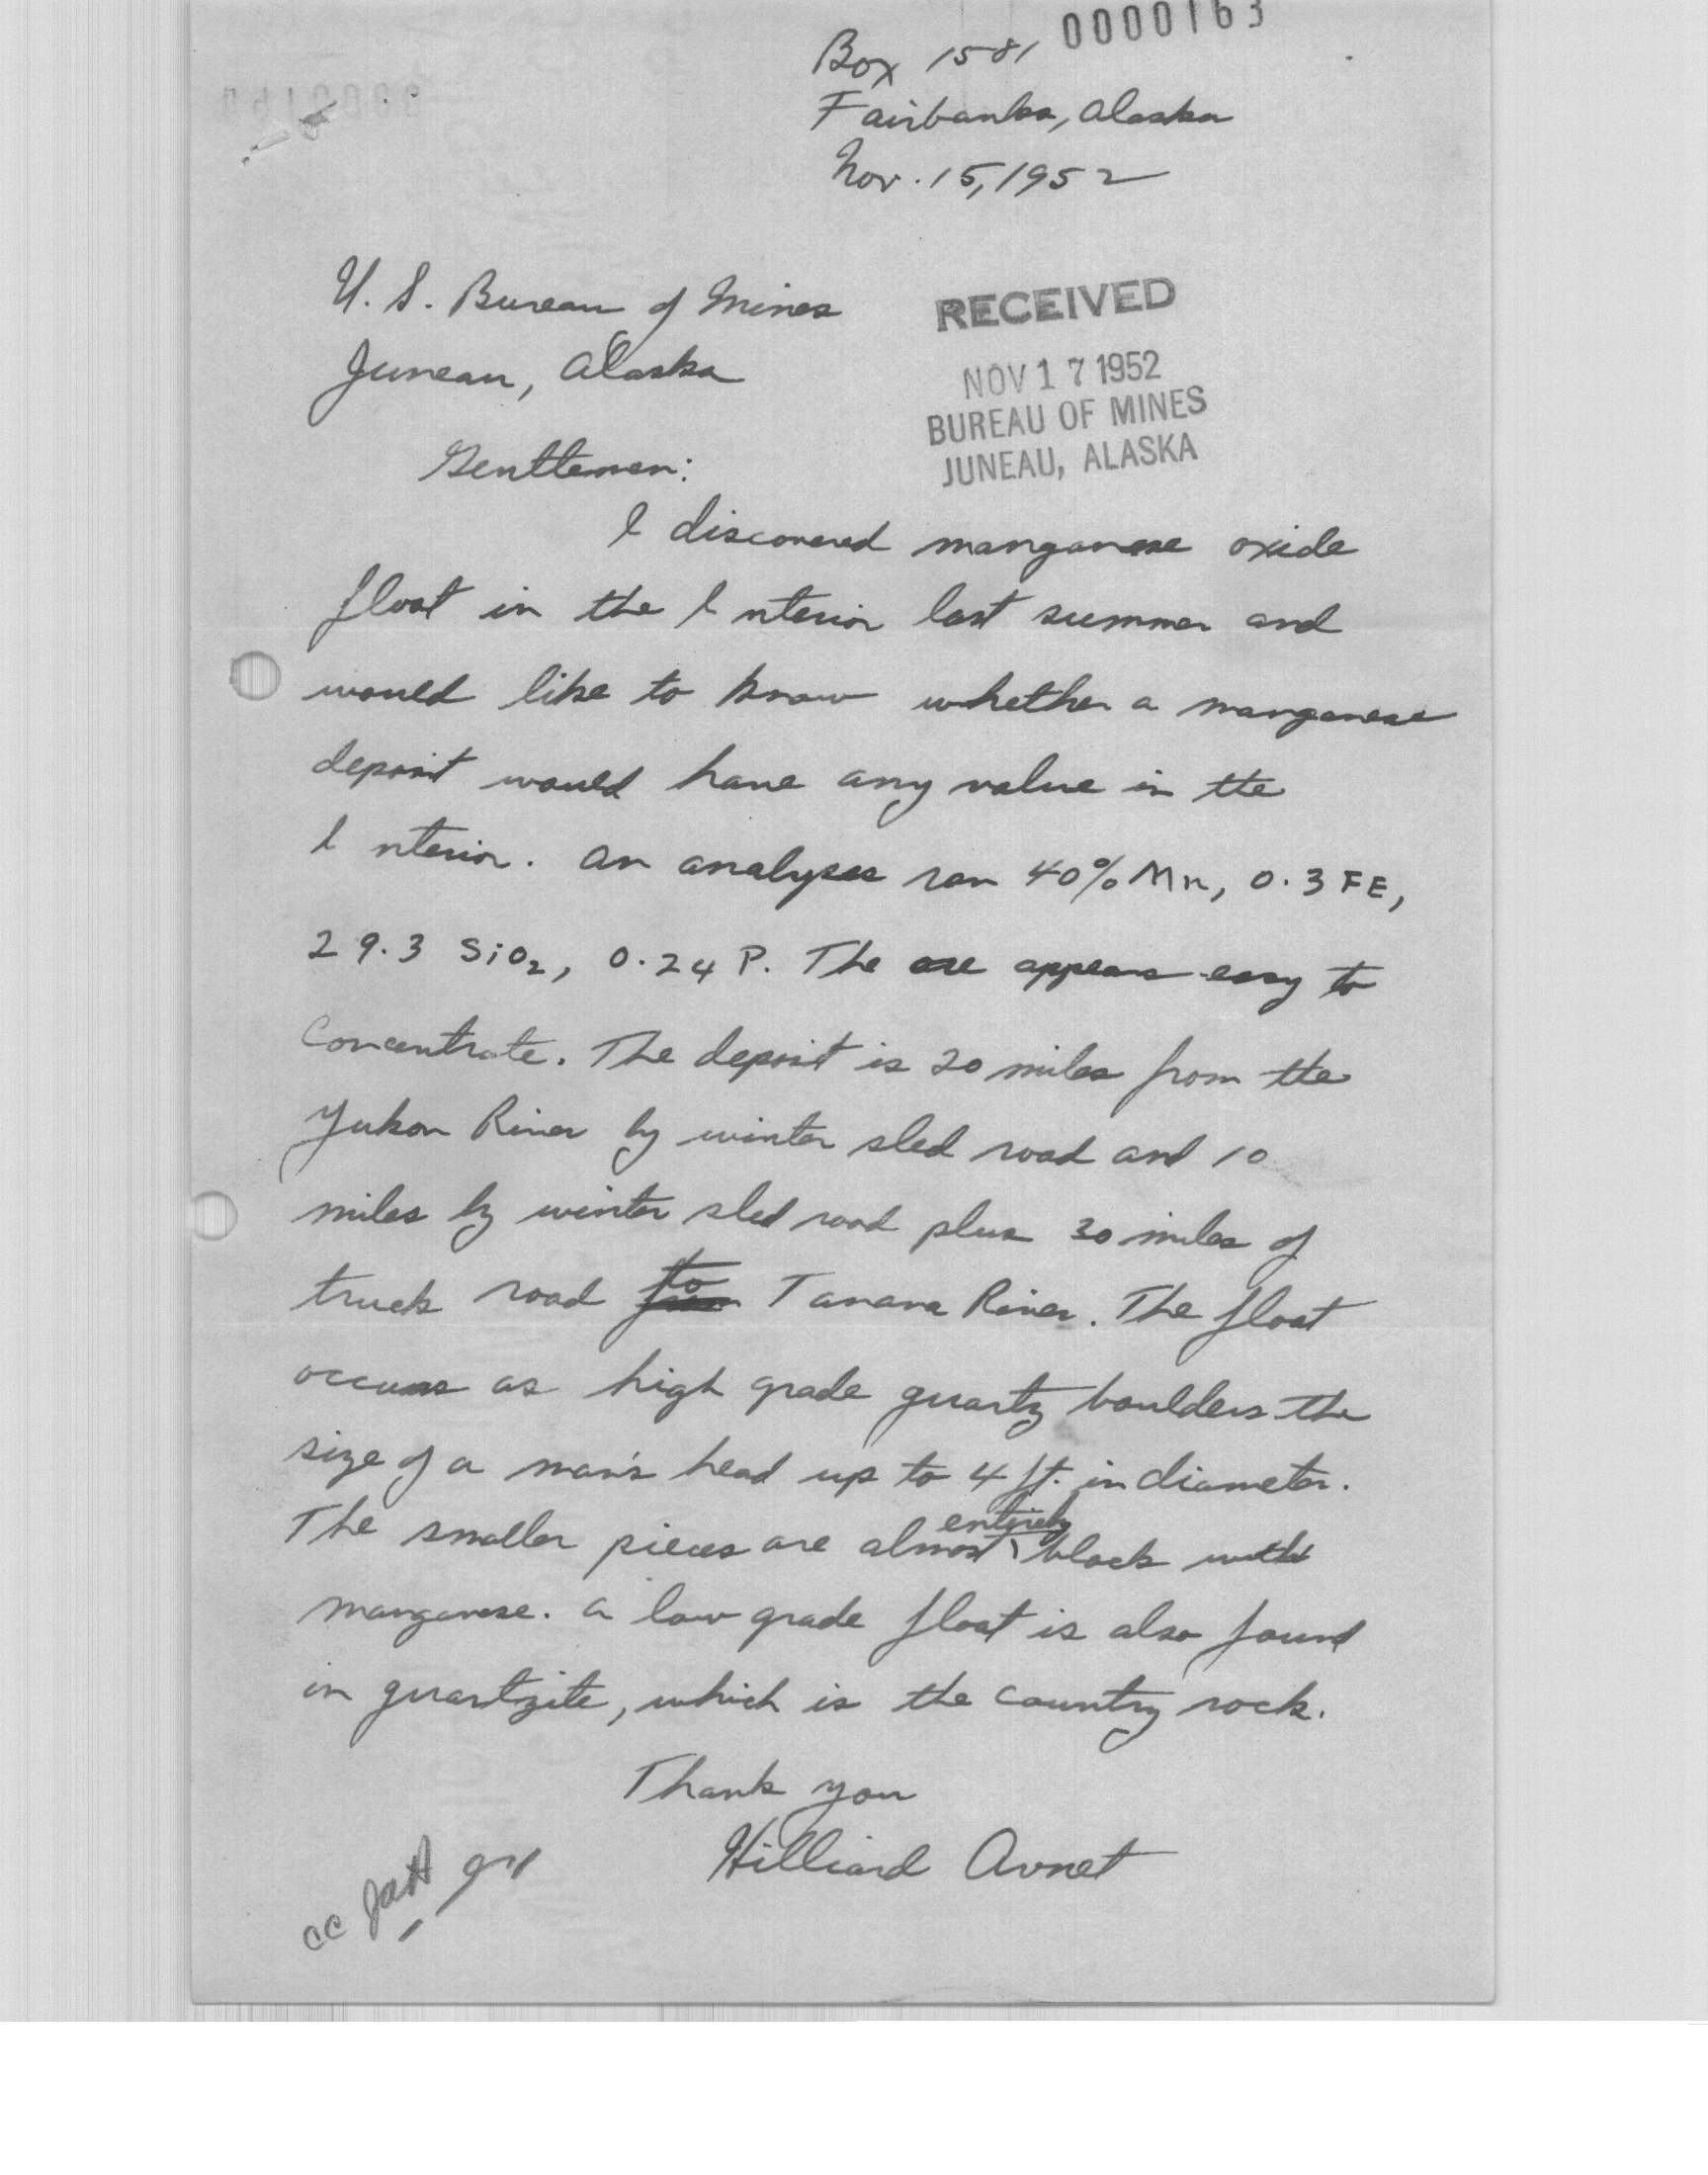 0000163
Box 1581
Fairbanks, Alaska
Nov. 15, 1952
U. S. Bureau of Mines
Juneau, Alaska
RECEIVED
NOV 17 1952
BUREAU OF MINES
JUNEAU, ALASKA
Gentlemen:
I discovered manganese oxide
float in the Interior last summer and
would like to know whether a manganese
deposit would have any value in the
Interior. An analyses ran 40% Mn, 0.3 FE,
29.3 SiO₂, 0.24 P. The ore appears easy to
concentrate. The deposit is 20 miles from the
Yukon River by winter sled road and 10
miles by winter sled road plus 30 miles of
truck road to Tanana River. The float
occurs as high grade quartz boulders the
size of a man's head up to 4 ft. in diameter.
The smaller pieces are almost entirely black with
manganese. A low grade float is also found
in quartzite, which is the country rock.
Thank you
Hilliard Avnet
cc